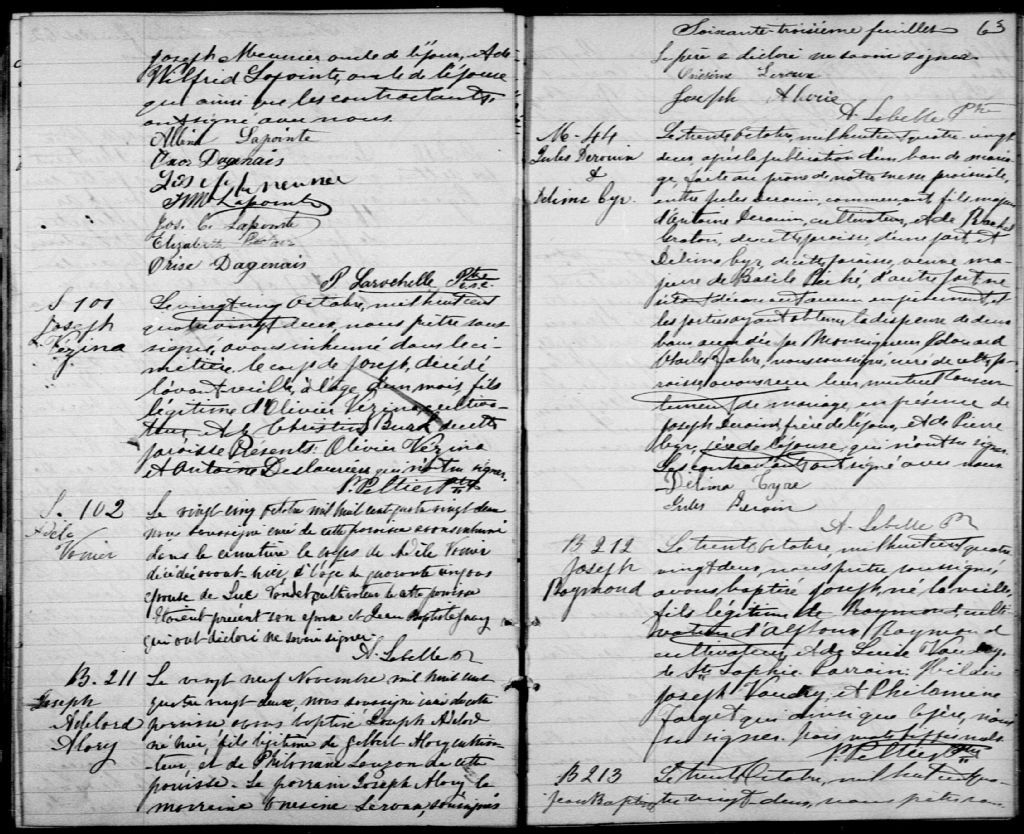 Joseph Meunier oncle de l'époux, et de
Wilfrid Lapointe, oncle de l'épouse
qui ainsi que les contractants,
ont signé avec nous.
Albina Lapointe
Dagenais
Joseph meunier
Lapointe
Jos. C. Lapointe
Elizabeth
Orise Dagenais
P. Larochelle Ptre
S. 101
Joseph
Vézina
Le vingt cinq Octobre, mil huit cent
quatre vingt deux, nous prêtre sous-
signé, avons inhumé dans le ci-
metière, le corps de Joseph, décédé
l'avant veille, à l'âge d'un mois, fils
légitime d'Olivier Vézina, cultiva-
teur, et de Christine Burk de cette
paroisse Présents: Olivier Vézina
et Antoine Deslauriers qui n'ont su signer.
P. Peltier Ptre
S. 102
Adèle
Vonier
Le vingt cinq Octobre mil huit cent quatre vingt deux
nous soussigné curé de cette paroisse avons inhumé
dans le cimetière le corps de Adèle Vonier
décédé avant-hier, à l'âge de quarante cinq ans
épouse de Luc cultivateur de cette paroisse
Etaient présent son époux et Jean Baptiste
qui ont déclaré ne savoir signer.
A. Labelle Ptr
B. 211
Joseph
Adélord
Alory
Le vingt neuf Novembre mil huit cent
quatre vingt deux, nous soussigné curé de cette
paroisse avons baptisé Joseph Adélord
né hier, fils légitime de Gilbert Alory cultiva-
teur, et de Philomène Lauzon de cette
paroisse. Le parrain Joseph Alory la
marraine Onésime Leroux, soussignés
Soixante-troisième feuillet 63
Le père a déclaré ne savoir signer.
Onésime Leroux
Joseph Alorie
A. Labelle Ptre
M-44
Jules Derouin
&
Délima Cyr.
Le trente Octobre, mil huit cent quatre vingt
deux, après la publication d'un ban de maria-
ge, faite au prône de notre messe paroissiale,
entre Jules Derouin, commerçant, fils majeur
d'Antoine Derouin, cultivateur, et de Rachel
de cette paroisse, d'une part, et
Délima Cyr, de cette paroisse, veuve ma-
jeure de Basile Piché, d'autre part ne
s'étant découvert aucun empêchement et
les parties ayant obtenu la dispense de deux
bans accordée par Monseigneur Edouard
Charles Fabre, nous soussigné, curé de cette pa-
roisse, avons reçu leur mutuel consen-
tement de mariage, en présence de
Joseph Derouin, frère de l'époux, et de Pierre
Cyr, père de l'épouse, qui n'ont su signer.
Les contractants ont signé avec nous
Délima Cyre
Jules Deroin
A. Labelle Ptr
B 212
Joseph
Raymond
Le trente Octobre, mil huit cent quatre
vingt deux, nous prêtre soussigné,
avons baptisé Joseph, né la veille,
fils légitime de Raymond culti-
vateur d'Alphonse Raymond
cultivateur, et de Louise Vaudry,
de Ste Sophie Parrain: Hildèr
Joseph Vaudry, et Philomène
Forget qui ainsi que le père, n'ont
su signer.
P. Peltier Ptre
B 213
Jean Baptiste
Le trente Octobre, mil huit cent qua-
tre vingt deux, nous prêtre sous-